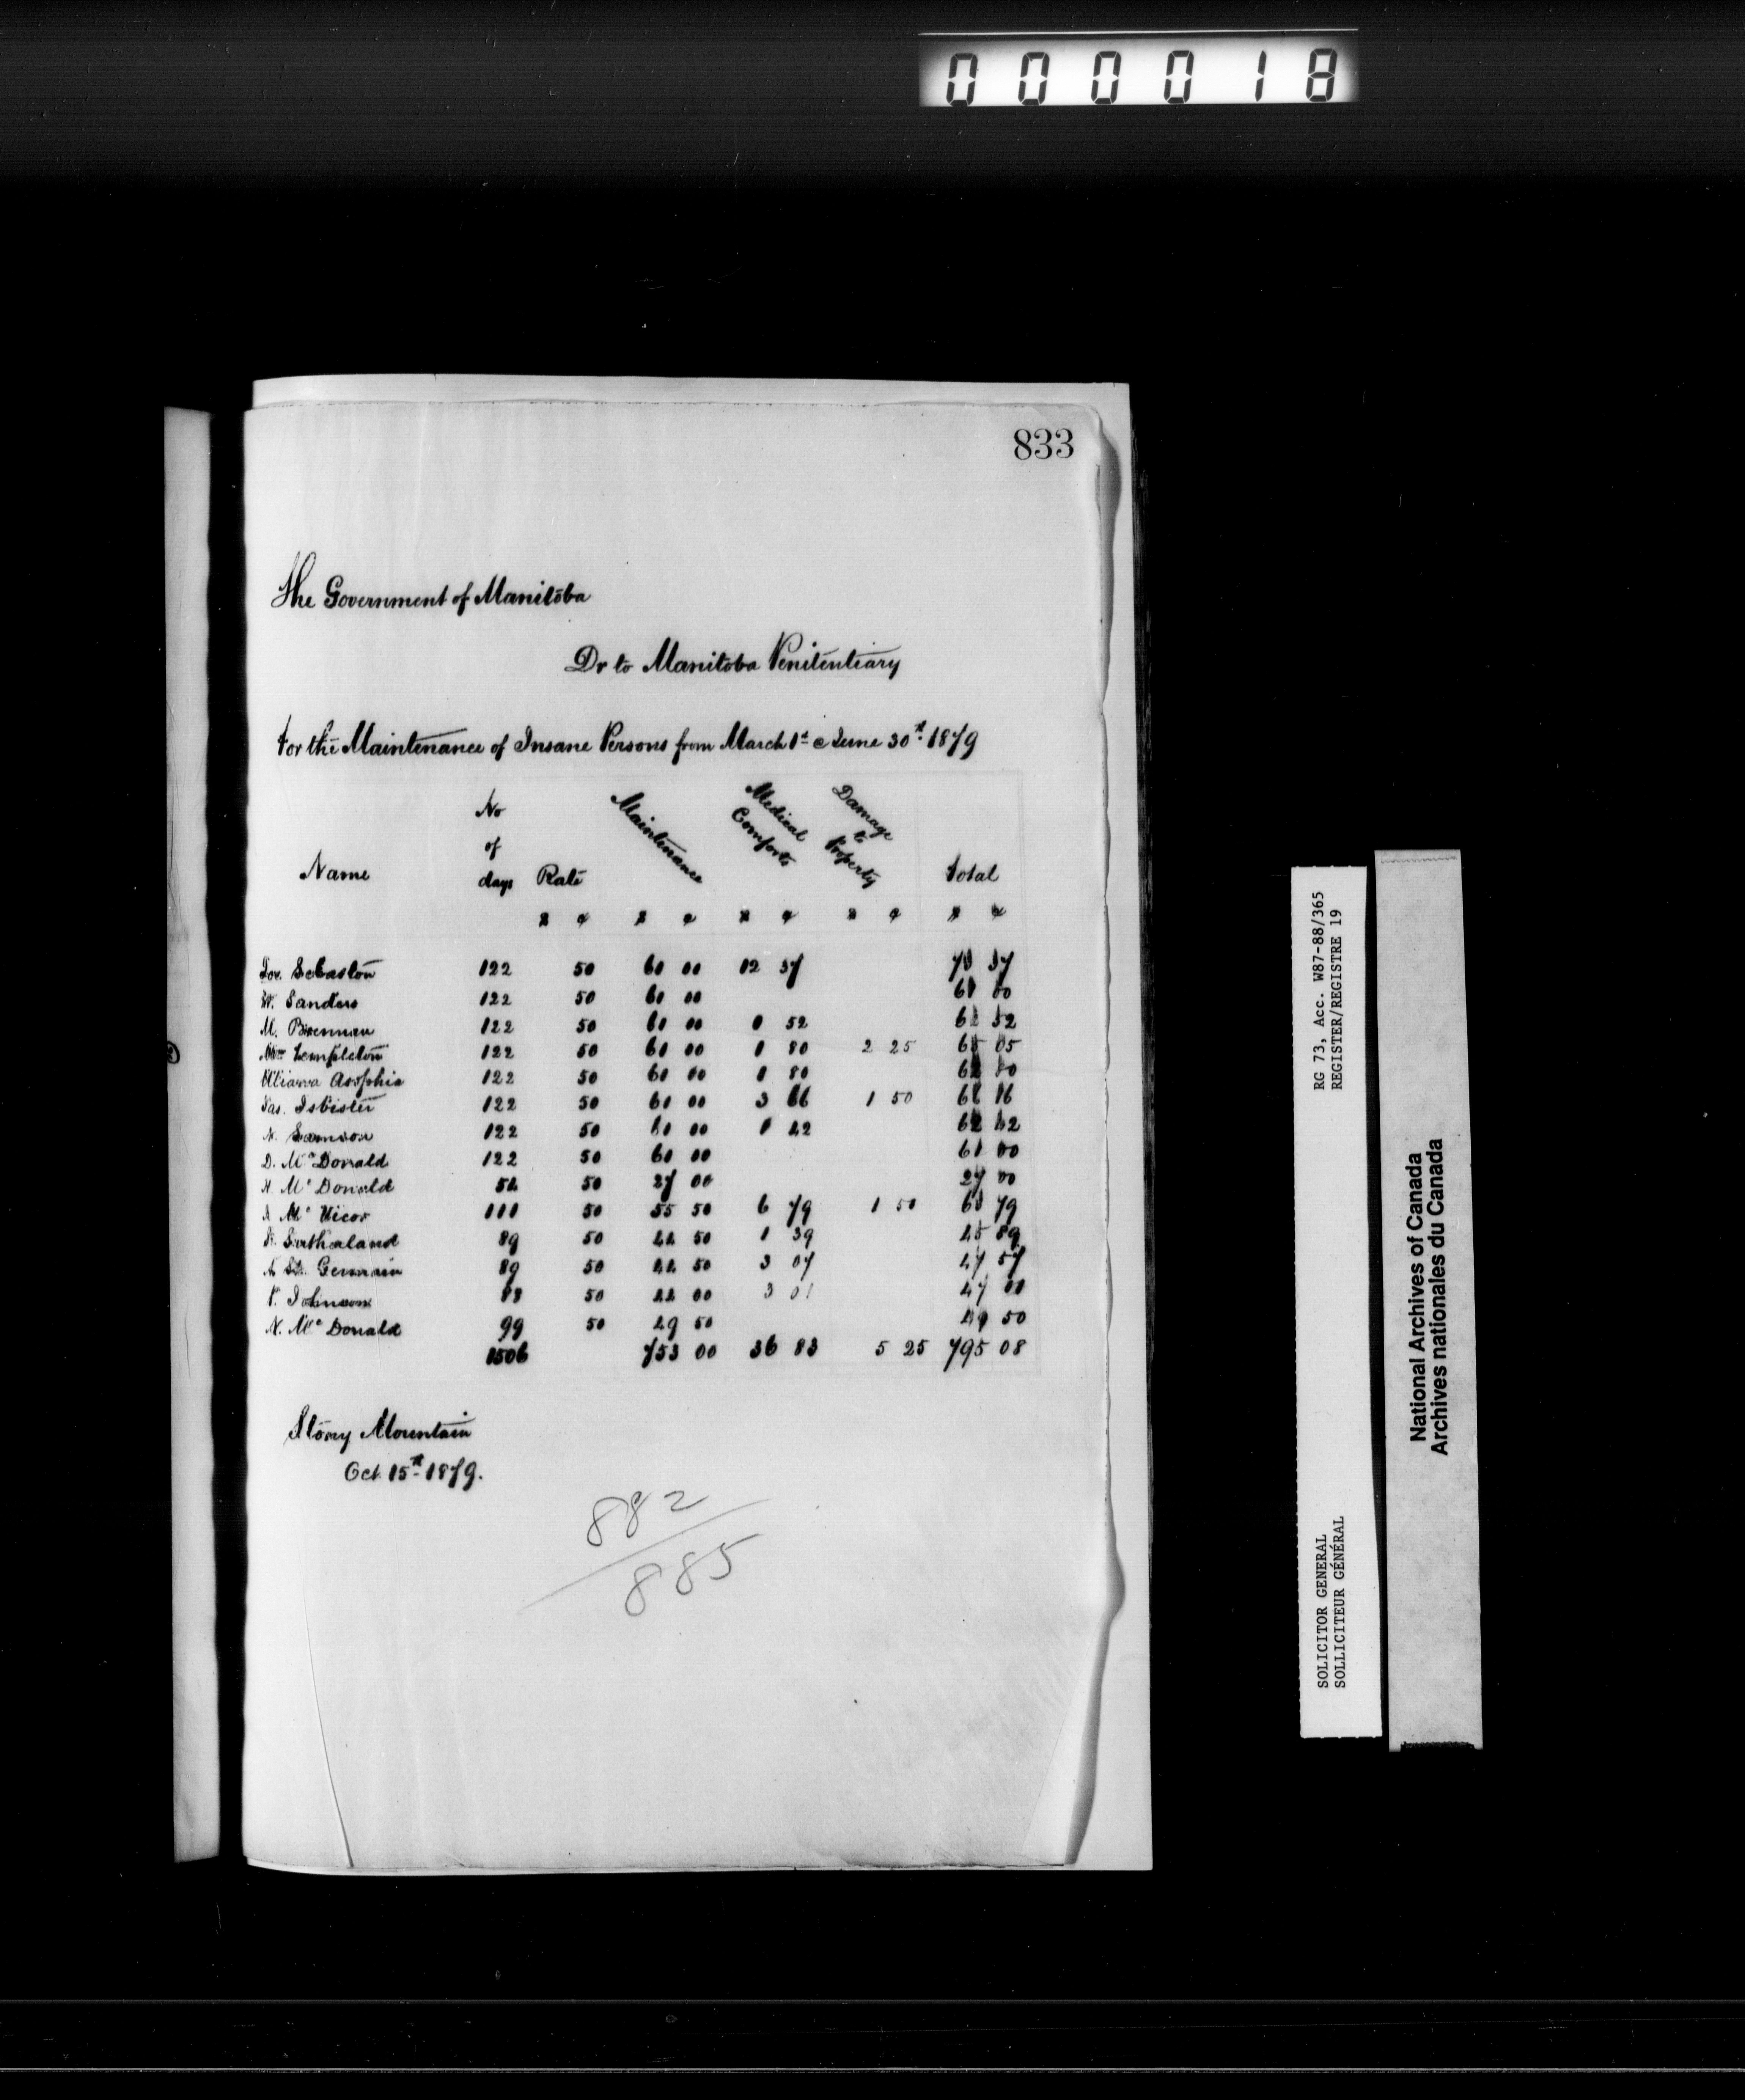 000018
833
The Government of Manitoba
Dr to Manitoba Penitentiary
For the Maintenance of Insane Persons from March 1st @ June 30th 1879
Name No of days Rate Maintenance Medical Comforts Damage to Property Total
$ ¢ $ ¢ $ ¢ $ ¢ $ ¢
Sebaston 122 50 61 00 12 37 73 37
W. Sanders 122 50 61 00 61 00
M. Brennan 122 50 61 00 1 52 62 52
Mrs Templeton 122 50 61 00 1 80 2 25 65 05
122 50 61 00 1 80 62 80
Jas. Isbister 122 50 61 00 3 66 1 50 66 16
N. Samson 122 50 61 00 1 42 62 42
D. McDonald 122 50 61 00 61 00
H. McDonald 54 50 27 00 27 00
McVicor 111 50 55 50 6 79 1 50 63 79
Sutherland 89 50 44 50 1 39 45 89
St. Germain 89 50 44 50 3 07 47 57
P. Johnson 88 50 44 00 3 01 47 01
N. McDonald 99 50 49 50 49 50
1506 753 00 36 83 5 25 795 08
Stony Mountain
Oct. 15th 1879.
882
885
RG 73, Acc. W87-88/365
REGISTER/REGISTRE 19
SOLICITOR GENERAL
SOLLICITEUR GÉNÉRAL
National Archives of Canada
Archives nationales du Canada